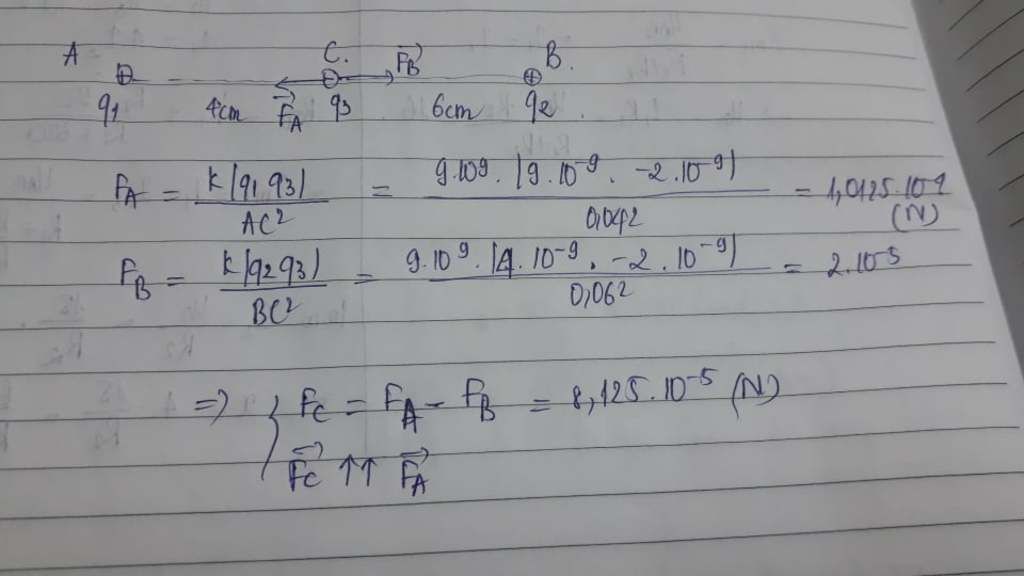 A C. F⃗B B.
⊕ ⊖ ⊕
q1 4cm F⃗A q3 6cm q2
FA = k|q1.q3| / AC² = 9.10⁹. |9.10⁻⁹ . -2.10⁻⁹| / 0,04² = 1,0125.10⁻⁴ (N)
FB = k|q2q3| / BC² = 9.10⁹. |4.10⁻⁹ . -2.10⁻⁹| / 0,06² = 2.10⁻⁵
=> { FC = FA - FB = 8,125.10⁻⁵ (N)
F⃗C ↑↑ F⃗A